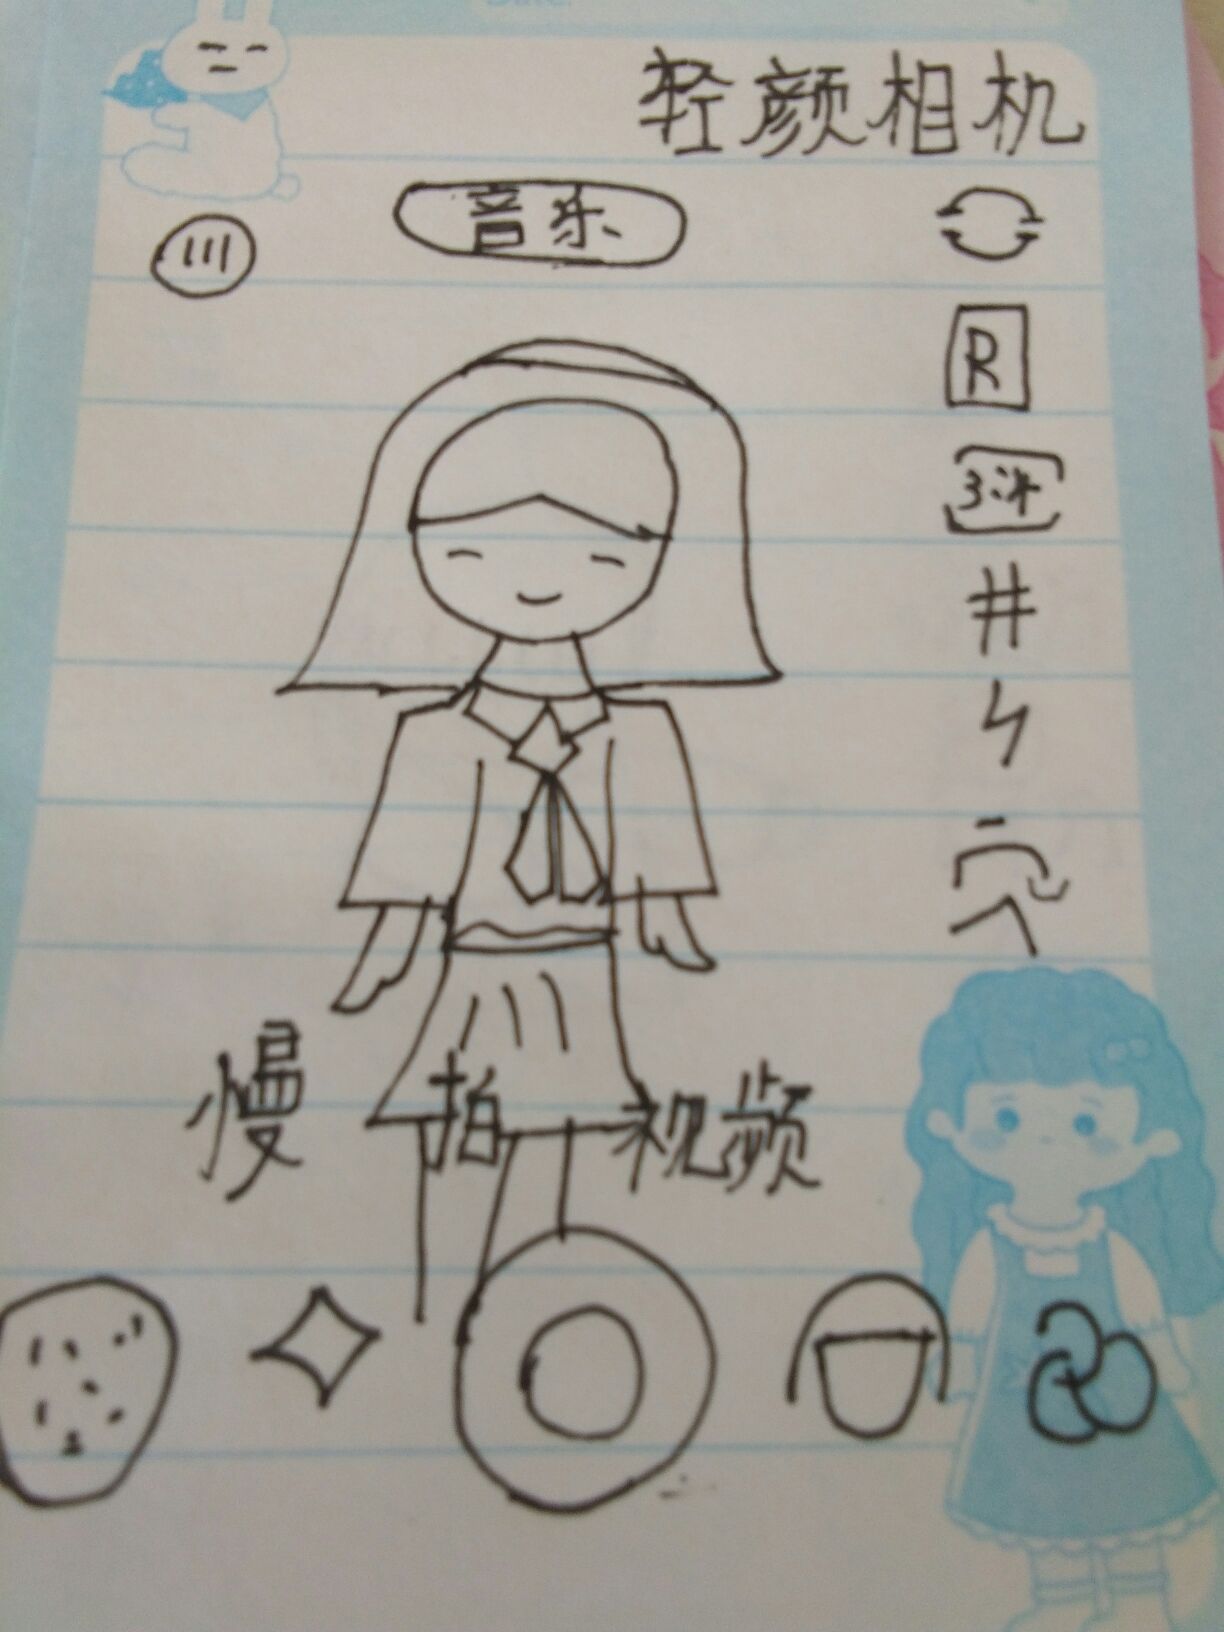 轻颜相机
音乐
R
#
慢 拍 视频